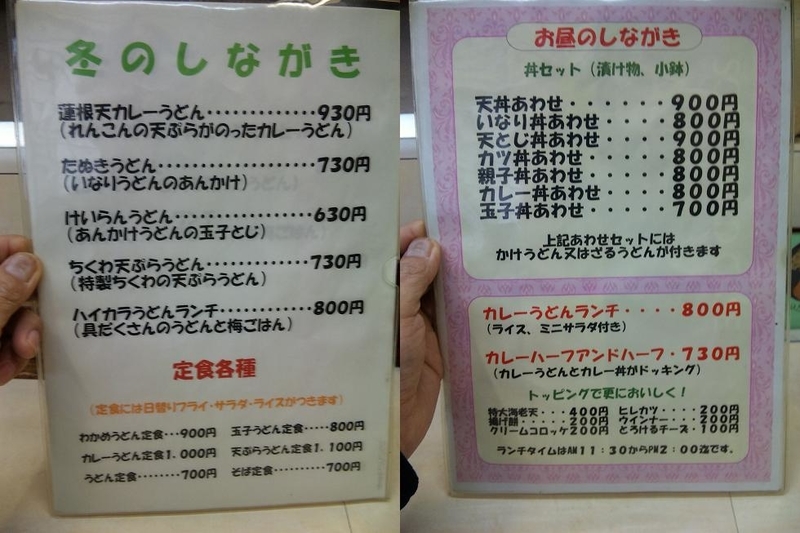 冬のしながき
蓮根天カレーうどん・・・・・・・・・・・・930円
（れんこんの天ぷらがのったカレーうどん）
たぬきうどん・・・・・・・・・・・・・・・・・・730円
（いなりうどんのあんかけ）
けいらんうどん・・・・・・・・・・・・・・・・630円
（あんかけうどんの玉子とじ）
ちくわ天ぷらうどん・・・・・・・・・・・・730円
（特製ちくわの天ぷらうどん）
ハイカラうどんランチ・・・・・・・・・・800円
（具だくさんのうどんと梅ごはん）
定食各種
（定食には日替りフライ・サラダ・ライスがつきます）
わかめうどん定食・・・900円 玉子うどん定食・・・・・800円
カレーうどん定食1．000円 天ぷらうどん定食1．100円
うどん定食・・・・・・・・700円 そば定食・・・・・・・・・700円
お昼のしながき
丼セット（漬け物、小鉢）
天丼あわせ・・・・・・900円
いなり丼あわせ・・・・800円
天とじ丼あわせ・・・・900円
カツ丼あわせ・・・・・800円
親子丼あわせ・・・・・800円
カレー丼あわせ・・・・800円
玉子丼あわせ・・・・・700円
上記あわせセットには
かけうどん又はざるうどんが付きます
カレーうどんランチ・・・・800円
（ライス、ミニサラダ付き）
カレーハーフアンドハーフ・730円
（カレーうどんとカレー丼がドッキング）
トッピングで更においしく！
特大海老天・・・400円 ヒレカツ・・・・200円
揚げ餅・・・・・200円 ウインナー・・・200円
クリームコロッケ200円 とろけるチーズ・100円
ランチタイムはAM11：30からPM2：00迄です。